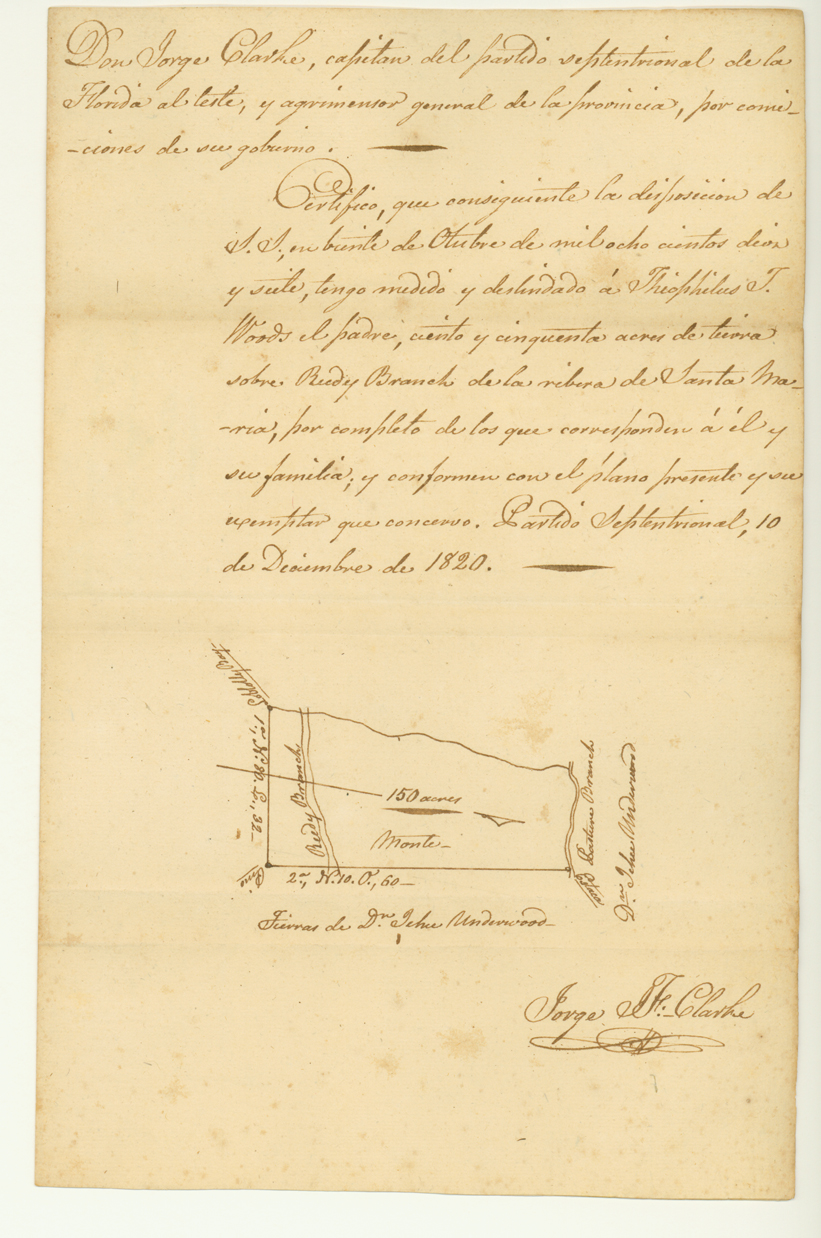 Don Jorge Clarke, capitan del partido septentrional de la
Florida al leste, y agrimensor general de la provincia, por comi-
-ciones de su gobierno.
Certifico, que consiguiente la disposicion de
S. S., en biente de Otubre de mil ocho cientos dies
y siete, tengo medido y deslindado á Theophilus T.
Woods el padre, ciento y cinquenta acres de tierra
sobre Reedy Branch de la ribera de Santa Ma-
-ria, por completo de los que corresponden á él y
su familia; y conformen con el plano presente y su
exemplar que concervo. Partido Septentrional, 10
de Diciembre de 1820.
Loblolly Bay
1ra, N. 80. E., 32
Reedy Branch
150 acres
Monte
Pino
2a, N. 10. O., 60
Branch
Dn Jehu Underwood
Tierras de Dn Jehu Underwood
Jorge J. F. Clarke